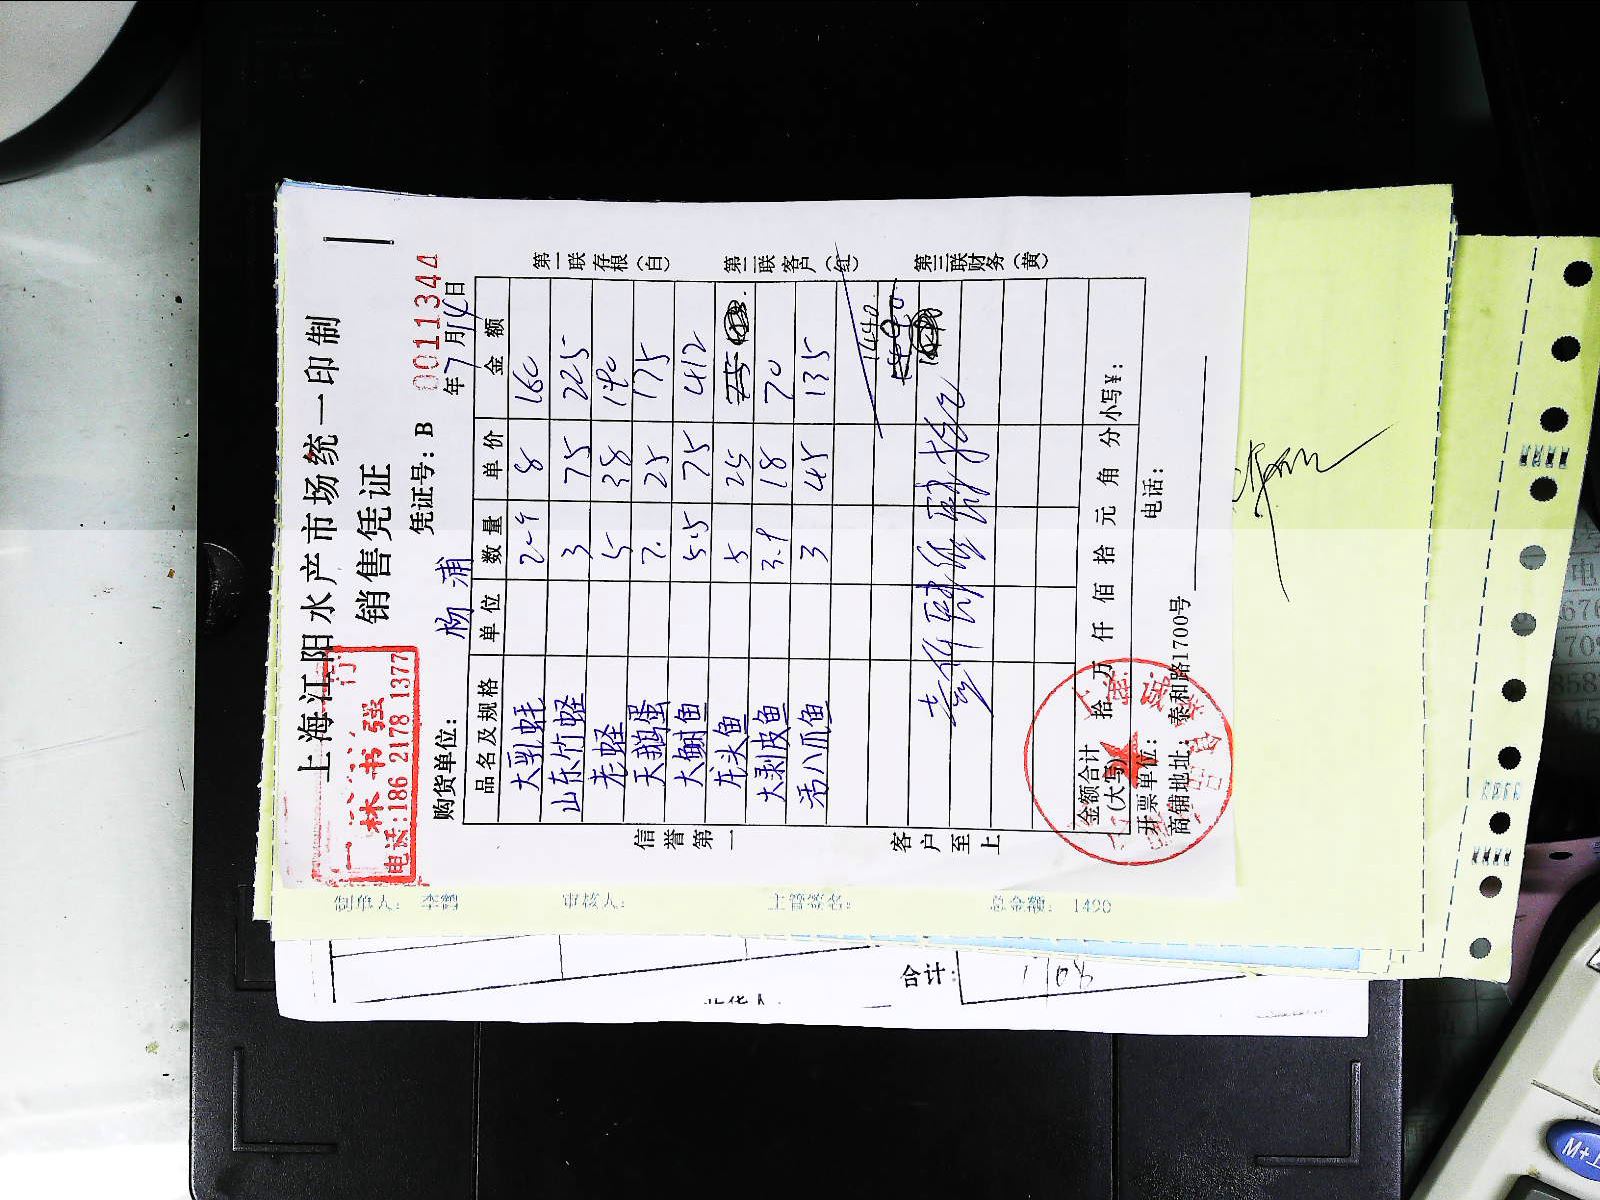 上海江阳水产市场统一印制
销售凭证
凭证号：B 0011344
林书强
电话:186 2178 1377
购货单位： 杨浦
年7月14日
品名及规格 单位 数量 单价 金额
大乳蚝 8 160
山东竹蛏 3 75 225
老蛏 5 38 190
天鹅蛋 7. 25 175
大鲥鱼 5.5 75 412
龙头鱼 5 25
大剥皮鱼 3.9 18 70
活八爪鱼 3 45 135
1440.
金额合计(大写) 拾 万 仟 佰 拾 元 角 分 小写¥：
开票单位： 电话：
商铺地址：泰和路1700号
第一联存根(白)
第二联客户(红)
第三联财务(黄)
信誉第一
客户至上
制单人： 审核人： 主管签名： 总金额： 1490
合计：
收货人
M+